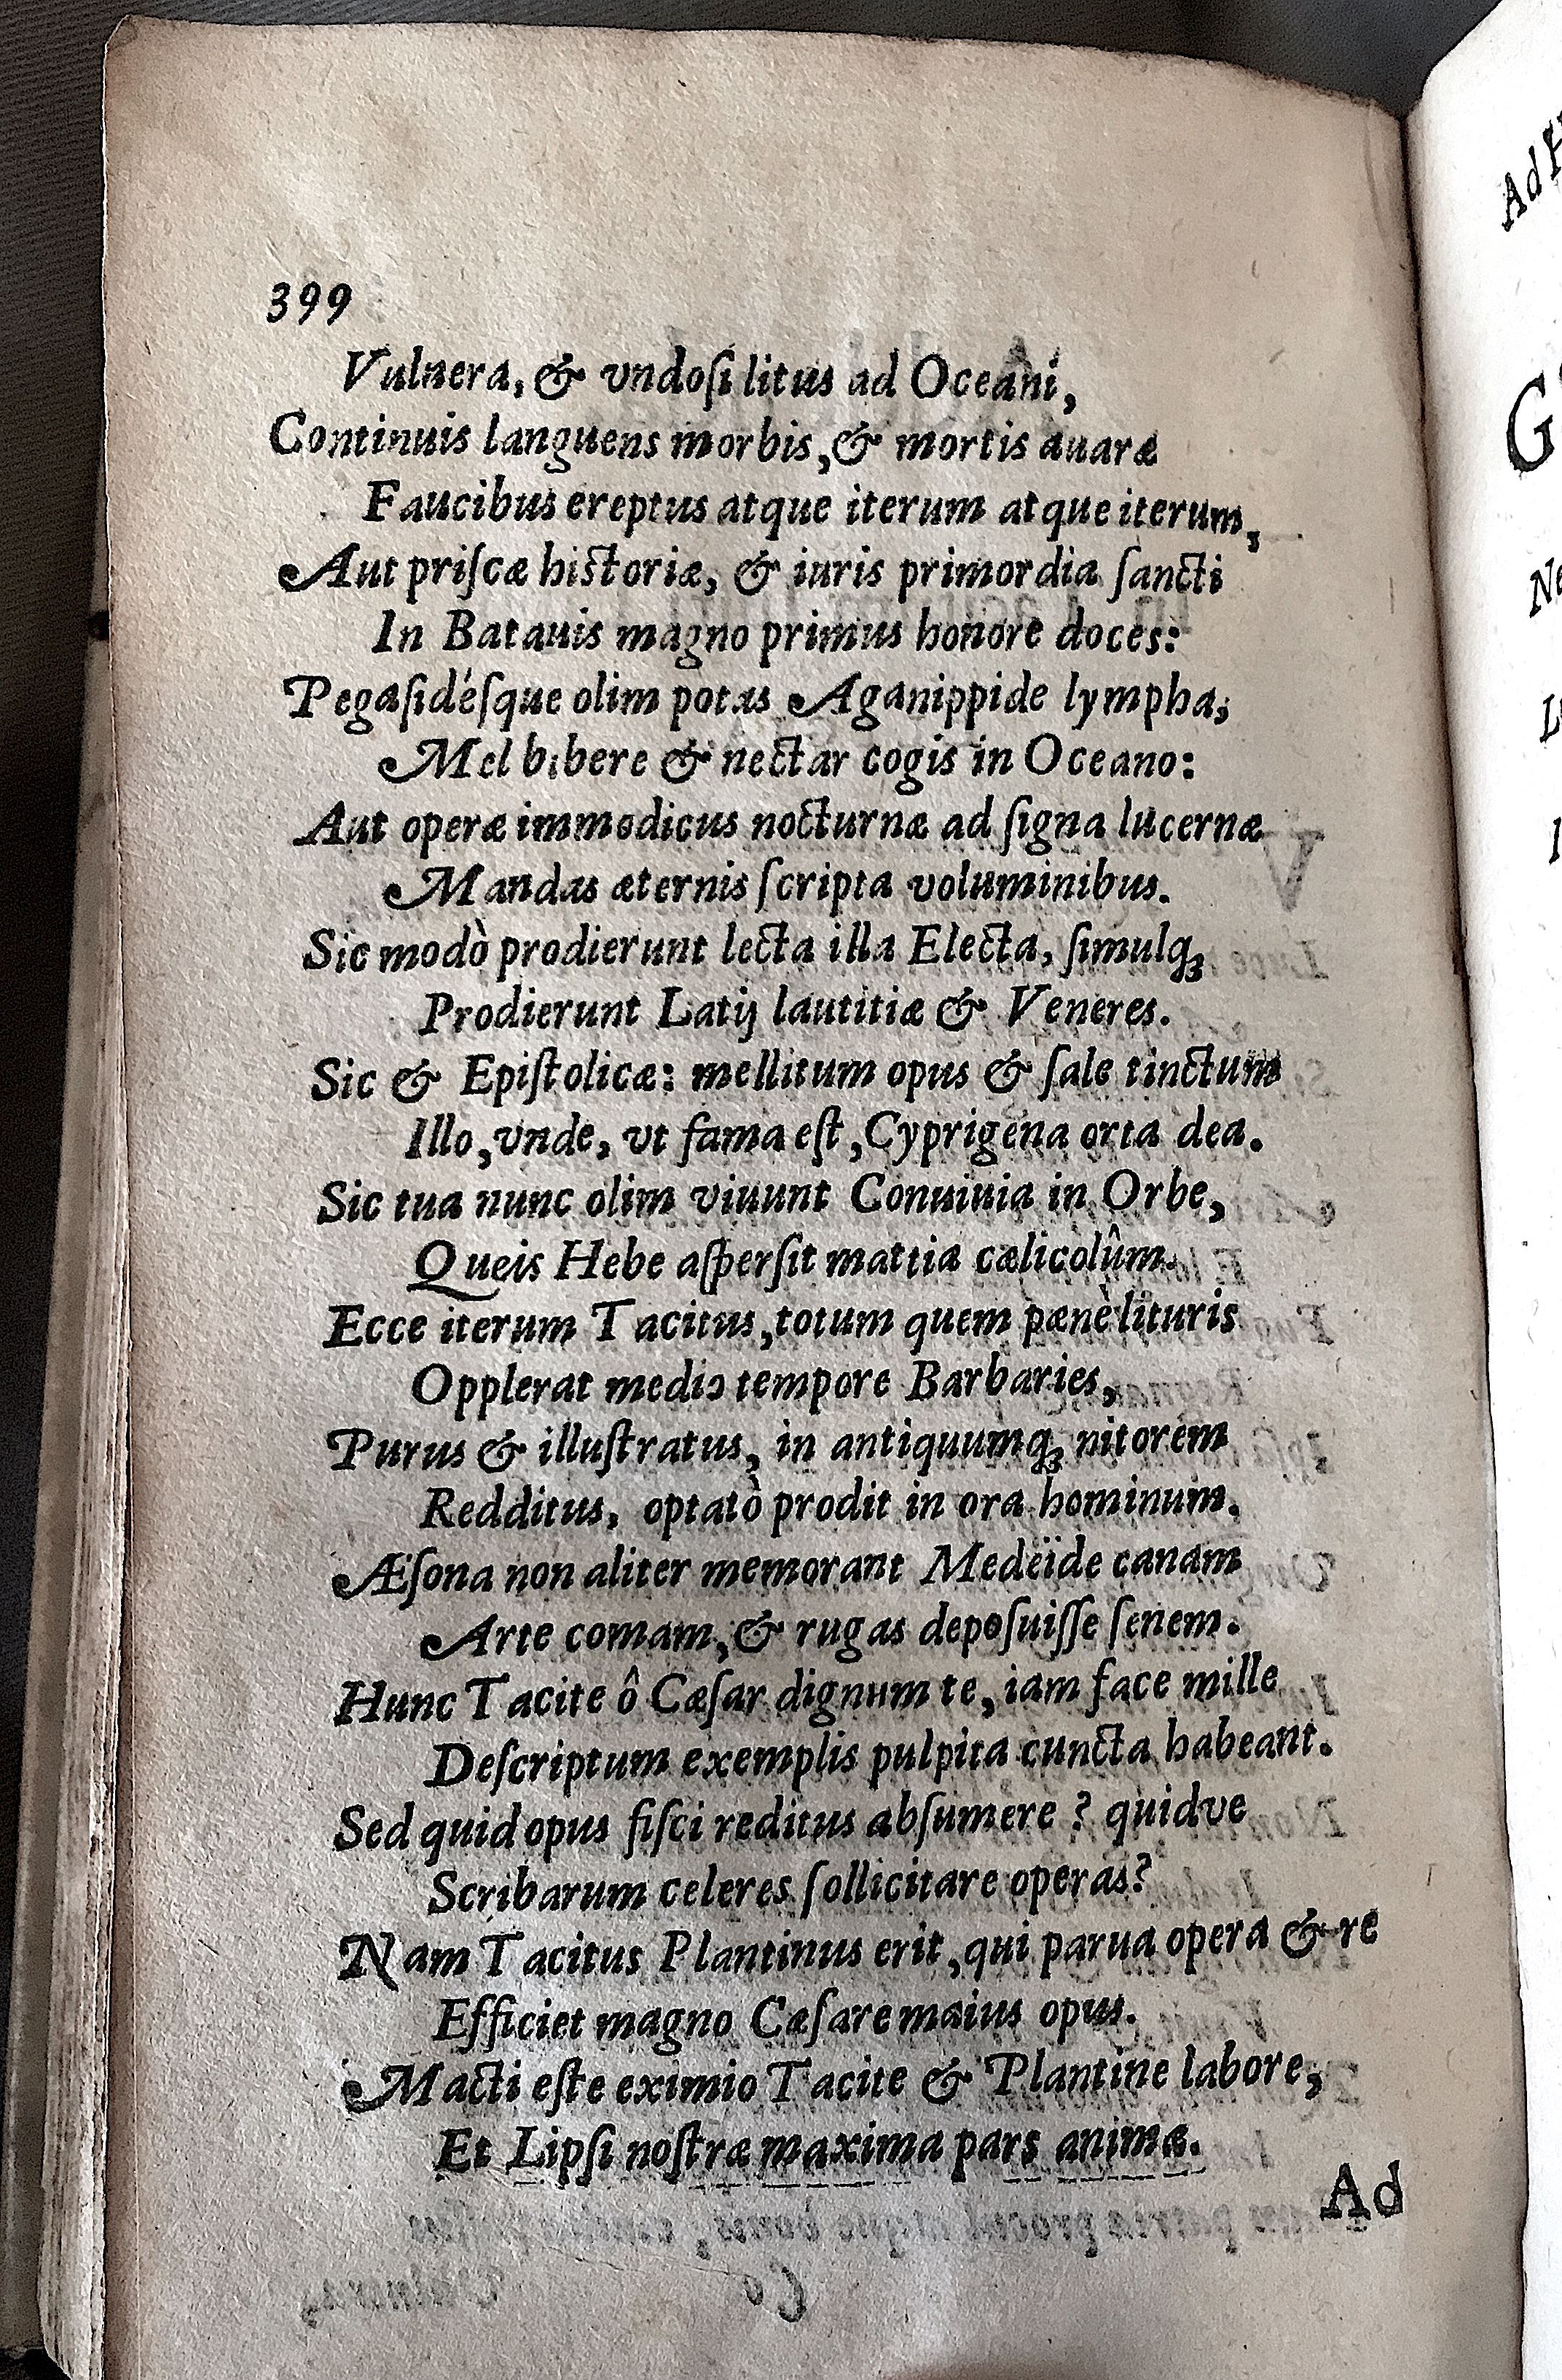 399
Vulnera, & vndoſi litus ad Oceani,
Continuis languens morbis, & mortis auaræ
Faucibus ereptus atque iterum atque iterum,
Aut priſcæ hiſtoriæ, & iuris primordia ſancti
In Batauis magno primus honore doces:
Pegaſidéſque olim potas Aganippide lympha,
Mel bibere & nectar cogis in Oceano:
Aut operæ immodicus nocturnæ ad ſigna lucernæ
Mandas æternis ſcripta voluminibus.
Sic modò prodierunt lecta illa Electa, ſimulq́;
Prodierunt Latij lautitiæ & Veneres.
Sic & Epiſtolicæ: mellitum opus & ſale tinctum
Illo, vnde, vt fama eſt, Cyprigena orta dea.
Sic tua nunc olim viuunt Conuiuia in Orbe,
Queis Hebe aſperſit mattia cælicolûm.
Ecce iterum Tacitus, totum quem pænè lituris
Opplerat medio tempore Barbaries,
Purus & illuſtratus, in antiquumq́; nitorem
Redditus, optatò prodit in ora hominum.
Æſona non aliter memorant Medeïde canam
Arte comam, & rugas depoſuiſſe ſenem.
Hunc Tacite ô Cæſar dignum te, iam face mille
Deſcriptum exemplis pulpita cuncta habeant.
Sed quid opus fiſci reditus abſumere? quidve
Scribarum celeres ſollicitare operas?
Nam Tacitus Plantinus erit, qui parua opera & re
Efficiet magno Cæſare maius opus.
Macti eſte eximio Tacite & Plantine labore,
Et Lipſi noſtræ maxima pars animæ.
Ad